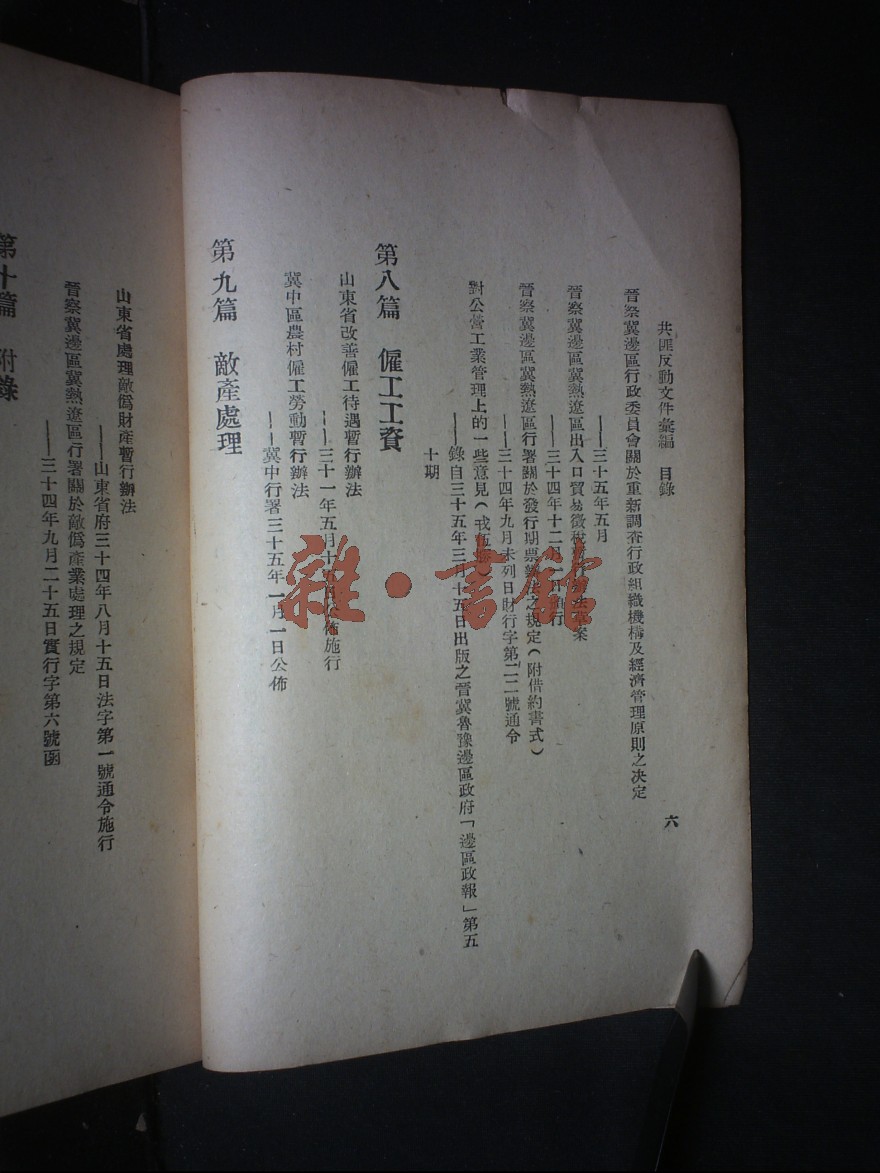 共匪反動文件彙編　目錄
六
晉察冀邊區行政委員會關於重新調查行政組織機構及經濟管理原則之決定
——三十五年五月
晉察冀邊區冀熱遼區出入口貿易徵稅暫行辦法草案
——三十四年十二月一日頒行
晉察冀邊區冀熱遼區行署關於發行期票辦法之規定（附借約書式）
——三十四年九月未列日財行字第二二號通令
對公營工業管理上的一些意見（戎伍勝）
——錄自三十五年三月十五日出版之晉冀魯豫邊區政府「邊區政報」第五
十期
第八篇　僱工工資
山東省改善僱工待遇暫行辦法
——三十一年五月十五日公佈施行
冀中區農村僱工勞動暫行辦法
——冀中行署三十五年一月一日公佈
第九篇　敵產處理
山東省處理敵僞財產暫行辦法
——山東省府三十四年八月十五日法字第一號通令施行
晉察冀邊區冀熱遼區行署關於敵僞產業處理之規定
——三十四年九月二十五日實行字第六號函
第十篇　附錄
雜·書館